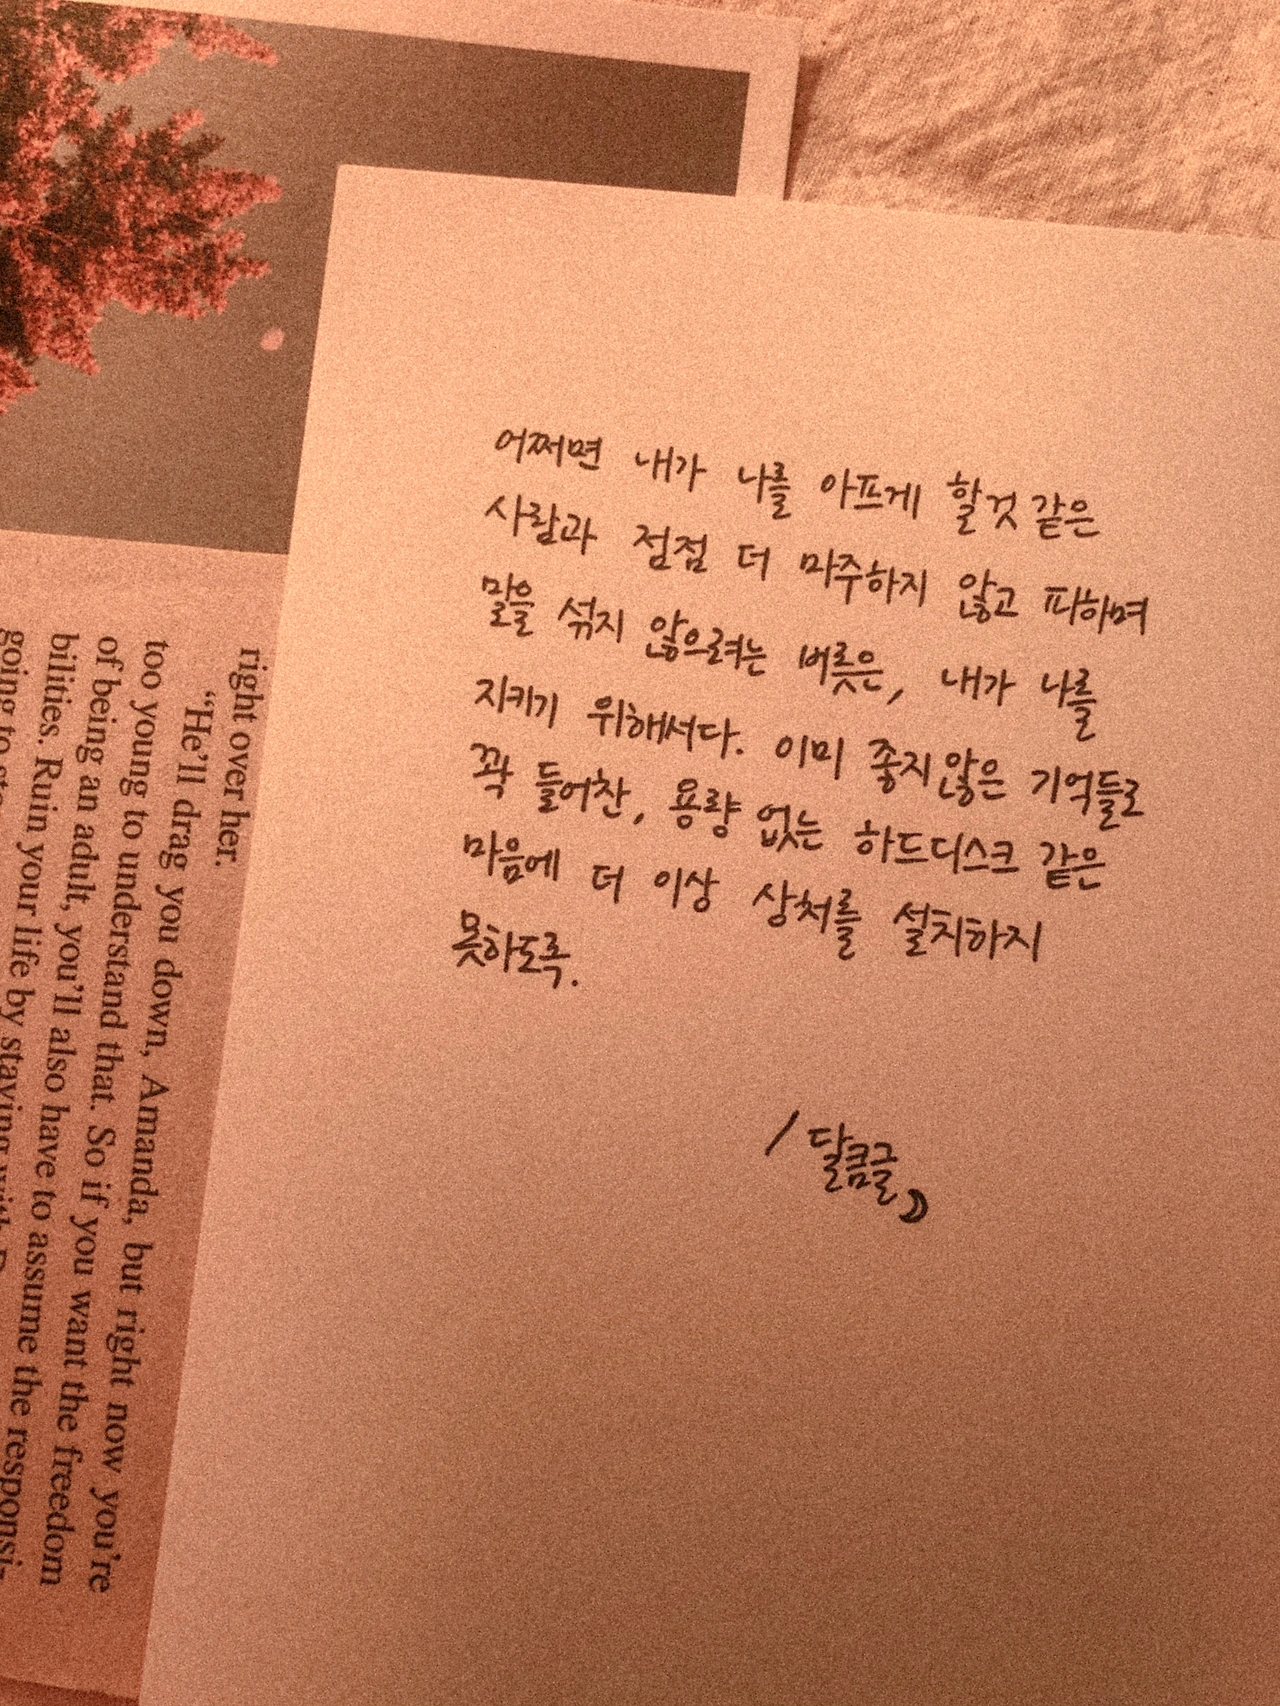 어쩌면 내가 나를 아프게 할것 같은
사람과 점점 더 마주하지 않고 피하며
말을 섞지 않으려는 버릇은, 내가 나를
지키기 위해서다. 이미 좋지않은 기억들로
꽉 들어찬, 용량 없는 하드디스크 같은
마음에 더 이상 상처를 설치하지
못하도록.
/ 달콤글
right over her.
“He’ll drag you down, Amanda, but right now you’re
too young to understand that. So if you want the freedom
of being an adult, you’ll also have to assume the responsi-
bilities. Ruin your life by staying with
going to